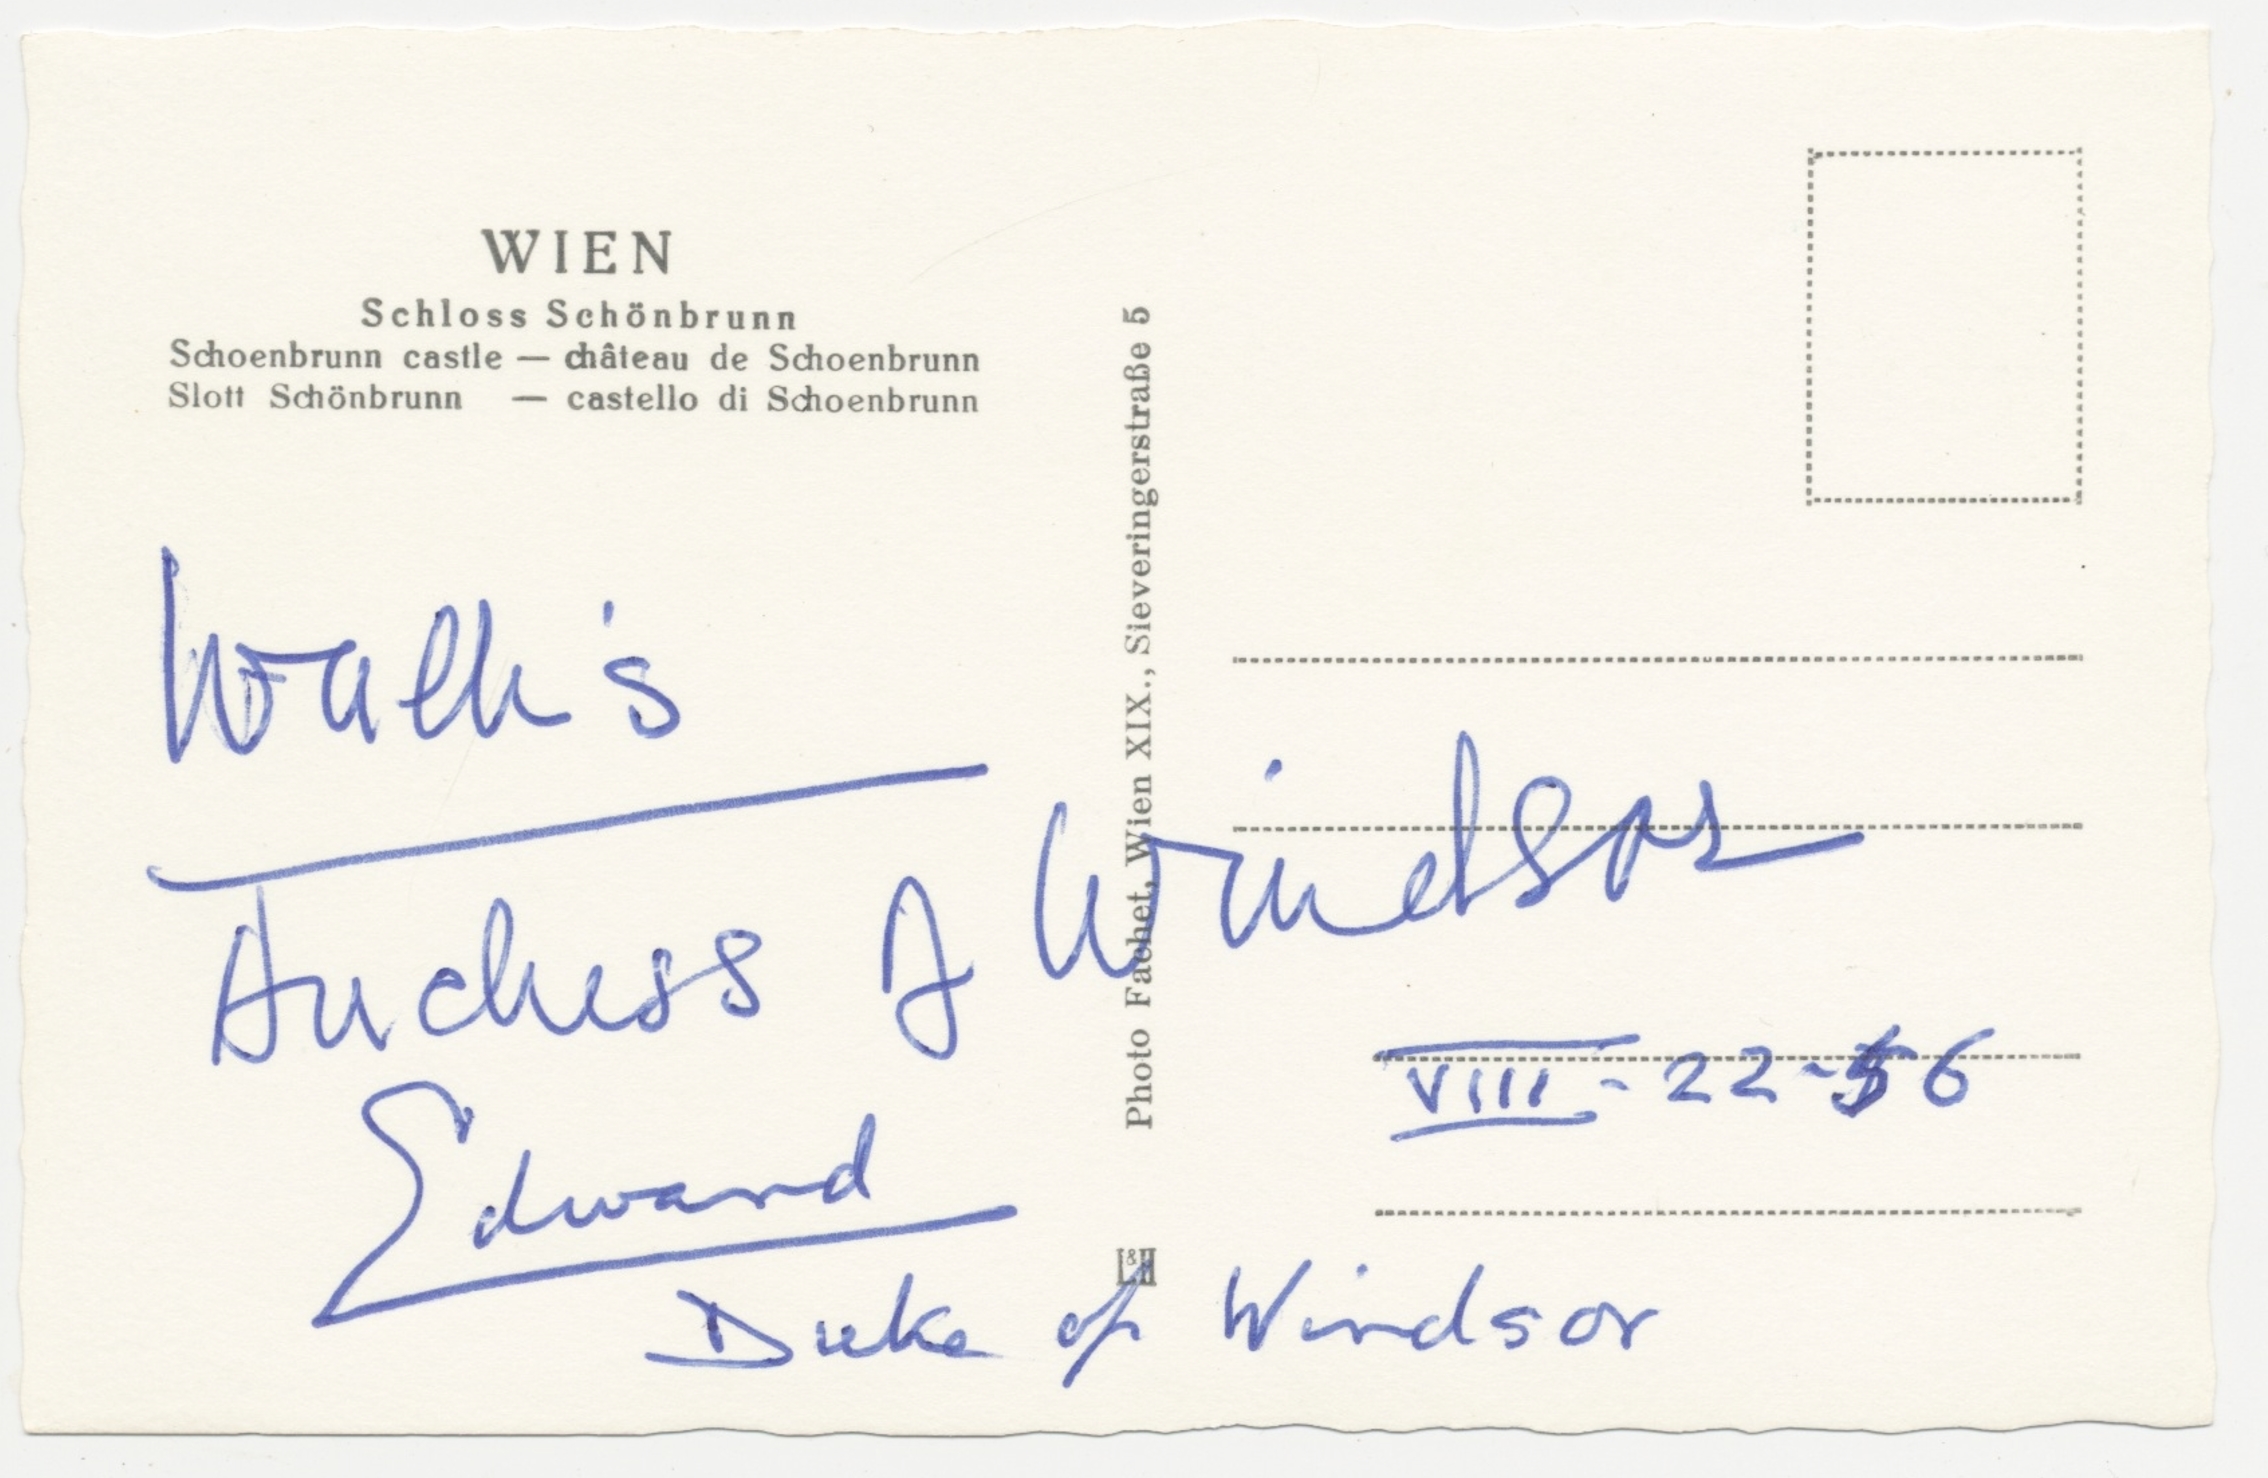 WIEN
Schloss Schönbrunn
Schoenbrunn castle — château de Schoenbrunn
Slott Schönbrunn — castello di Schoenbrunn
Photo Fachet, Wien XIX., Sieveringerstraße 5
Wallis
Duchess of Windsor
VIII - 22 - 56
Edward
L&H
Duke of Windsor